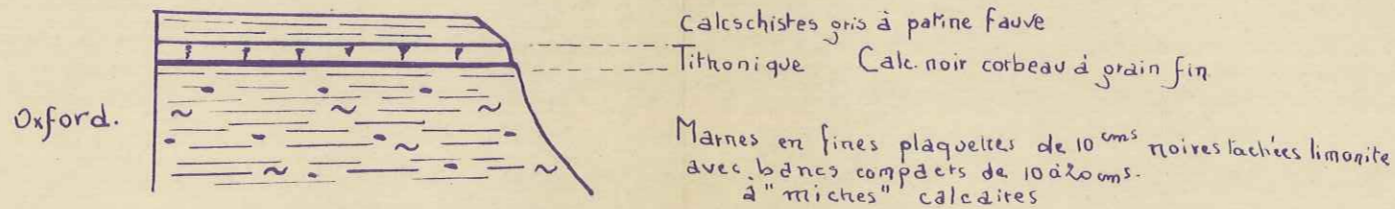 Calcschistes gris à patine fauve
Tithonique Calc. noir corbeau à grain fin
Oxford.
Marnes en fines plaquettes de 10 cms noires tachées limonite
avec bancs compacts de 10 à 20 cms.
à "miches" calcaires